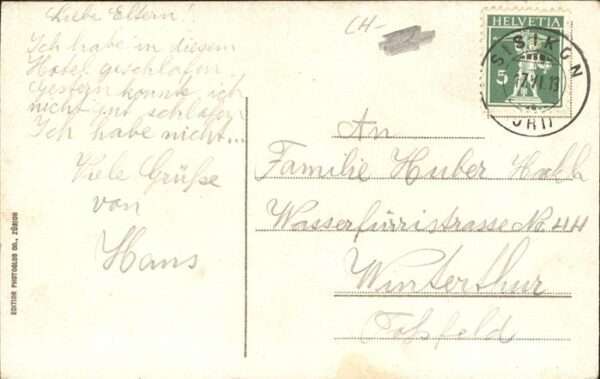 Liebe Eltern!
Ich habe in diesem
Hotel geschlafen.
Gestern konnte ich
nicht gut schlafen
Ich habe nicht...
Viele Grüße
von
Hans
EDITION PHOTOGLOB CO., ZÜRICH
CH-
HELVETIA
5
SISIKON
VI.13
(URI)
An
Familie Huber
Wasserfurristrasse No. 44
Winterthur
Tössfeld